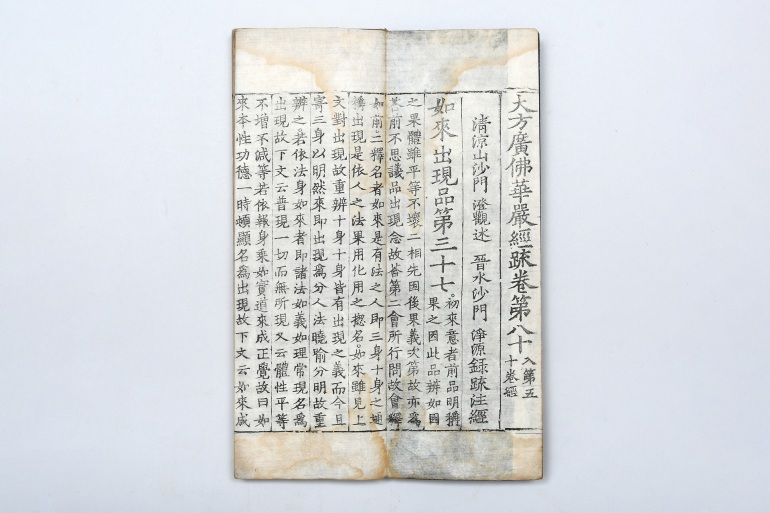 大方廣佛華嚴經䟽卷第八十 入第五十卷經
清涼山沙門 澄觀述 晉水沙門 淨源錄䟽注經
如來出現品第三十七 初來意者前品明稱果之因此品辨如因
之果體雖平等不壞二相先因後果義次第故亦爲
荅前不思議品出現念故荅第二會所行問故會釋
如前二釋名者如來是有法之人即三身十身之通
稱出現是依人之法果用化用之揔名如來雖見上
文對出現故重辨十身十身皆有出現之義而今且
寄三身以明然來即出現爲分人法曉喻分明故重
辨之若依法身如來者即諸法如義如理常現名爲
出現故下文云普現一切而無所現又云體性平等
不增不減等若依報身乘如實道來成正覺故曰如
來本性功德一時頓顯名爲出現故下文云如來成